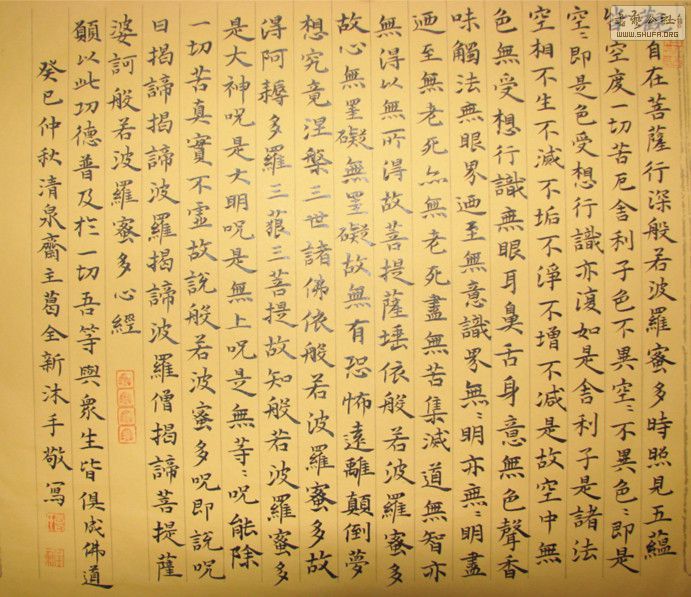 自在菩薩行深般若波羅蜜多時照見五蘊
空度一切苦厄舍利子色不異空〻不異色〻即是
空〻即是色受想行識亦復如是舍利子是諸法
空相不生不滅不垢不淨不增不减是故空中無
色無受想行識無眼耳鼻舌身意無色聲香
味觸法無眼界迺至無意識界無〻明亦無〻明盡
迺至無老死亦無老死盡無苦集滅道無智亦
無得以無所得故菩提薩埵依般若波羅蜜多
故心無罣礙無罣礙故無有恐怖遠離顛倒夢
想究竟涅槃三世諸佛依般若波羅蜜多故
得阿耨多羅三藐三菩提故知般若波羅蜜多
是大神呪是大明呪是無上呪是無等〻呪能除
一切苦真實不虛故說般若波蜜多呪即說呪
曰揭諦揭諦波羅揭諦波羅僧揭諦菩提薩
婆訶般若波羅蜜多心經
願以此功德普及於一切吾等與眾生皆俱成佛道
癸巳仲秋清泉齋主葛全新沐手敬寫
WWW.SHUFA.ORG